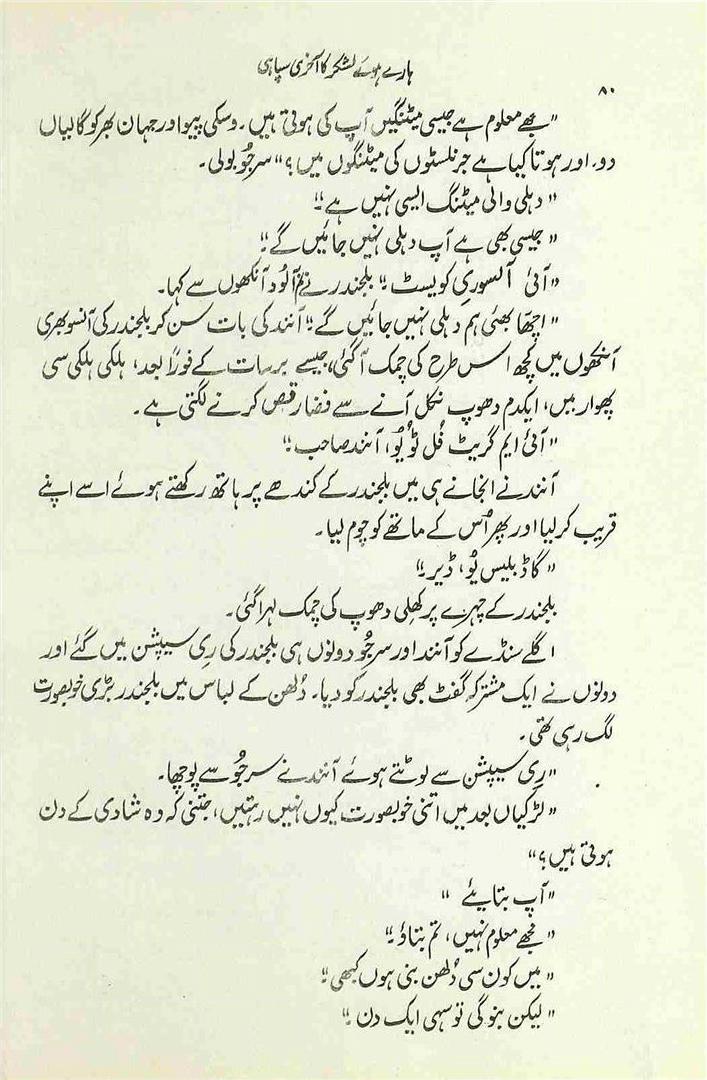 ہارے ہوئے لشکر کا آخری سپاہی
۸۰
"مجھے معلوم ہے جیسی میٹنگیں آپ کی ہوتی ہیں۔ وسکی پیو اور جہان بھر کو گالیاں
دو۔ اور ہوتا کیا ہے جرنلسٹوں کی میٹنگوں میں؟" سرجُو بولی۔
"دہلی والی میٹنگ ایسی نہیں ہے۔"
"جیسی بھی ہے آپ دہلی نہیں جائیں گے۔"
"آئی آلسوری کویسٹ۔" بلجندر نے نم آلُود آنکھوں سے کہا۔
"اچھّا بھئی ہم دہلی نہیں جائیں گے۔" آنند کی بات سن کر بلجندر کی آنسو بھری
آنکھوں میں کچھ اس طرح کی چمک آ گئی، جیسے برسات کے فوراً بعد، ہلکی ہلکی سی
پھوار میں، ایکدم دھوپ نکل آنے سے فضا رقص کرنے لگتی ہے۔
"آئی ایم گریٹ فُل ٹو یُو، آنند صاحب۔"
آنند نے انجانے ہی میں بلجندر کے کندھے پر ہاتھ رکھتے ہوئے اسے اپنے
قریب کر لیا اور پھر اُس کے ماتھے کو چوم لیا۔
"گاڈ بلیس یُو، ڈیر۔"
بلجندر کے چہرے پر کھِلی دھوپ کی چمک لہرا گئی۔
اگلے سنڈے کو آنند اور سرجُو دونوں ہی بلجندر کی رِی سیپشن میں گئے اور
دونوں نے ایک مشترکہ گفٹ بھی بلجندر کو دیا۔ دُلھن کے لباس میں بلجندر بڑی خوبصورت
لگ رہی تھی۔
"رِی سیپشن سے لوٹتے ہوئے آنند نے سرجُو سے پوچھا۔
"لڑکیاں بعد میں اتنی خوبصورت کیوں نہیں رہتیں، جتنی کہ وہ شادی کے دن
ہوتی ہیں؟"
"آپ بتایئے"
"مجھے معلوم نہیں، تم بتاؤ۔"
"میں کون سی دُلھن بنی ہوں کبھی۔"
"لیکن بنو گی تو سہی ایک دن۔"